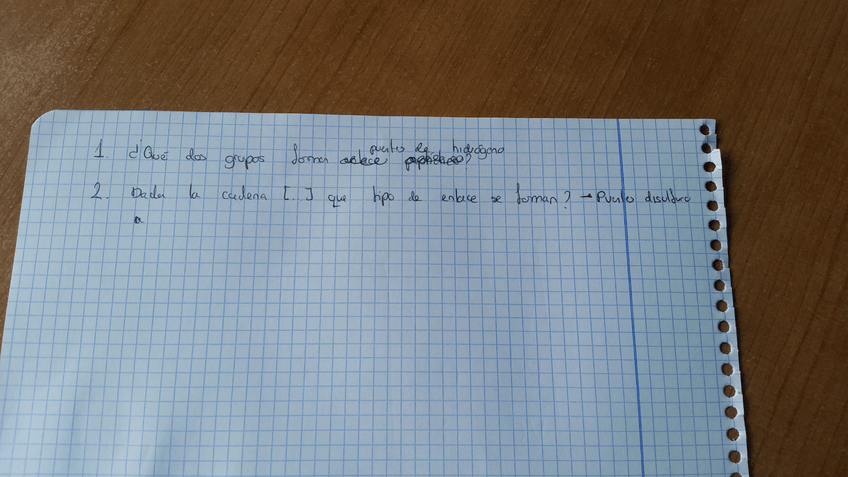 puente de hidrógeno
1. ¿Qué dos grupos forman enlace peptídico?
2. Dada la cadena [...] que tipo de enlace se forman? → Puente disulfuro
a